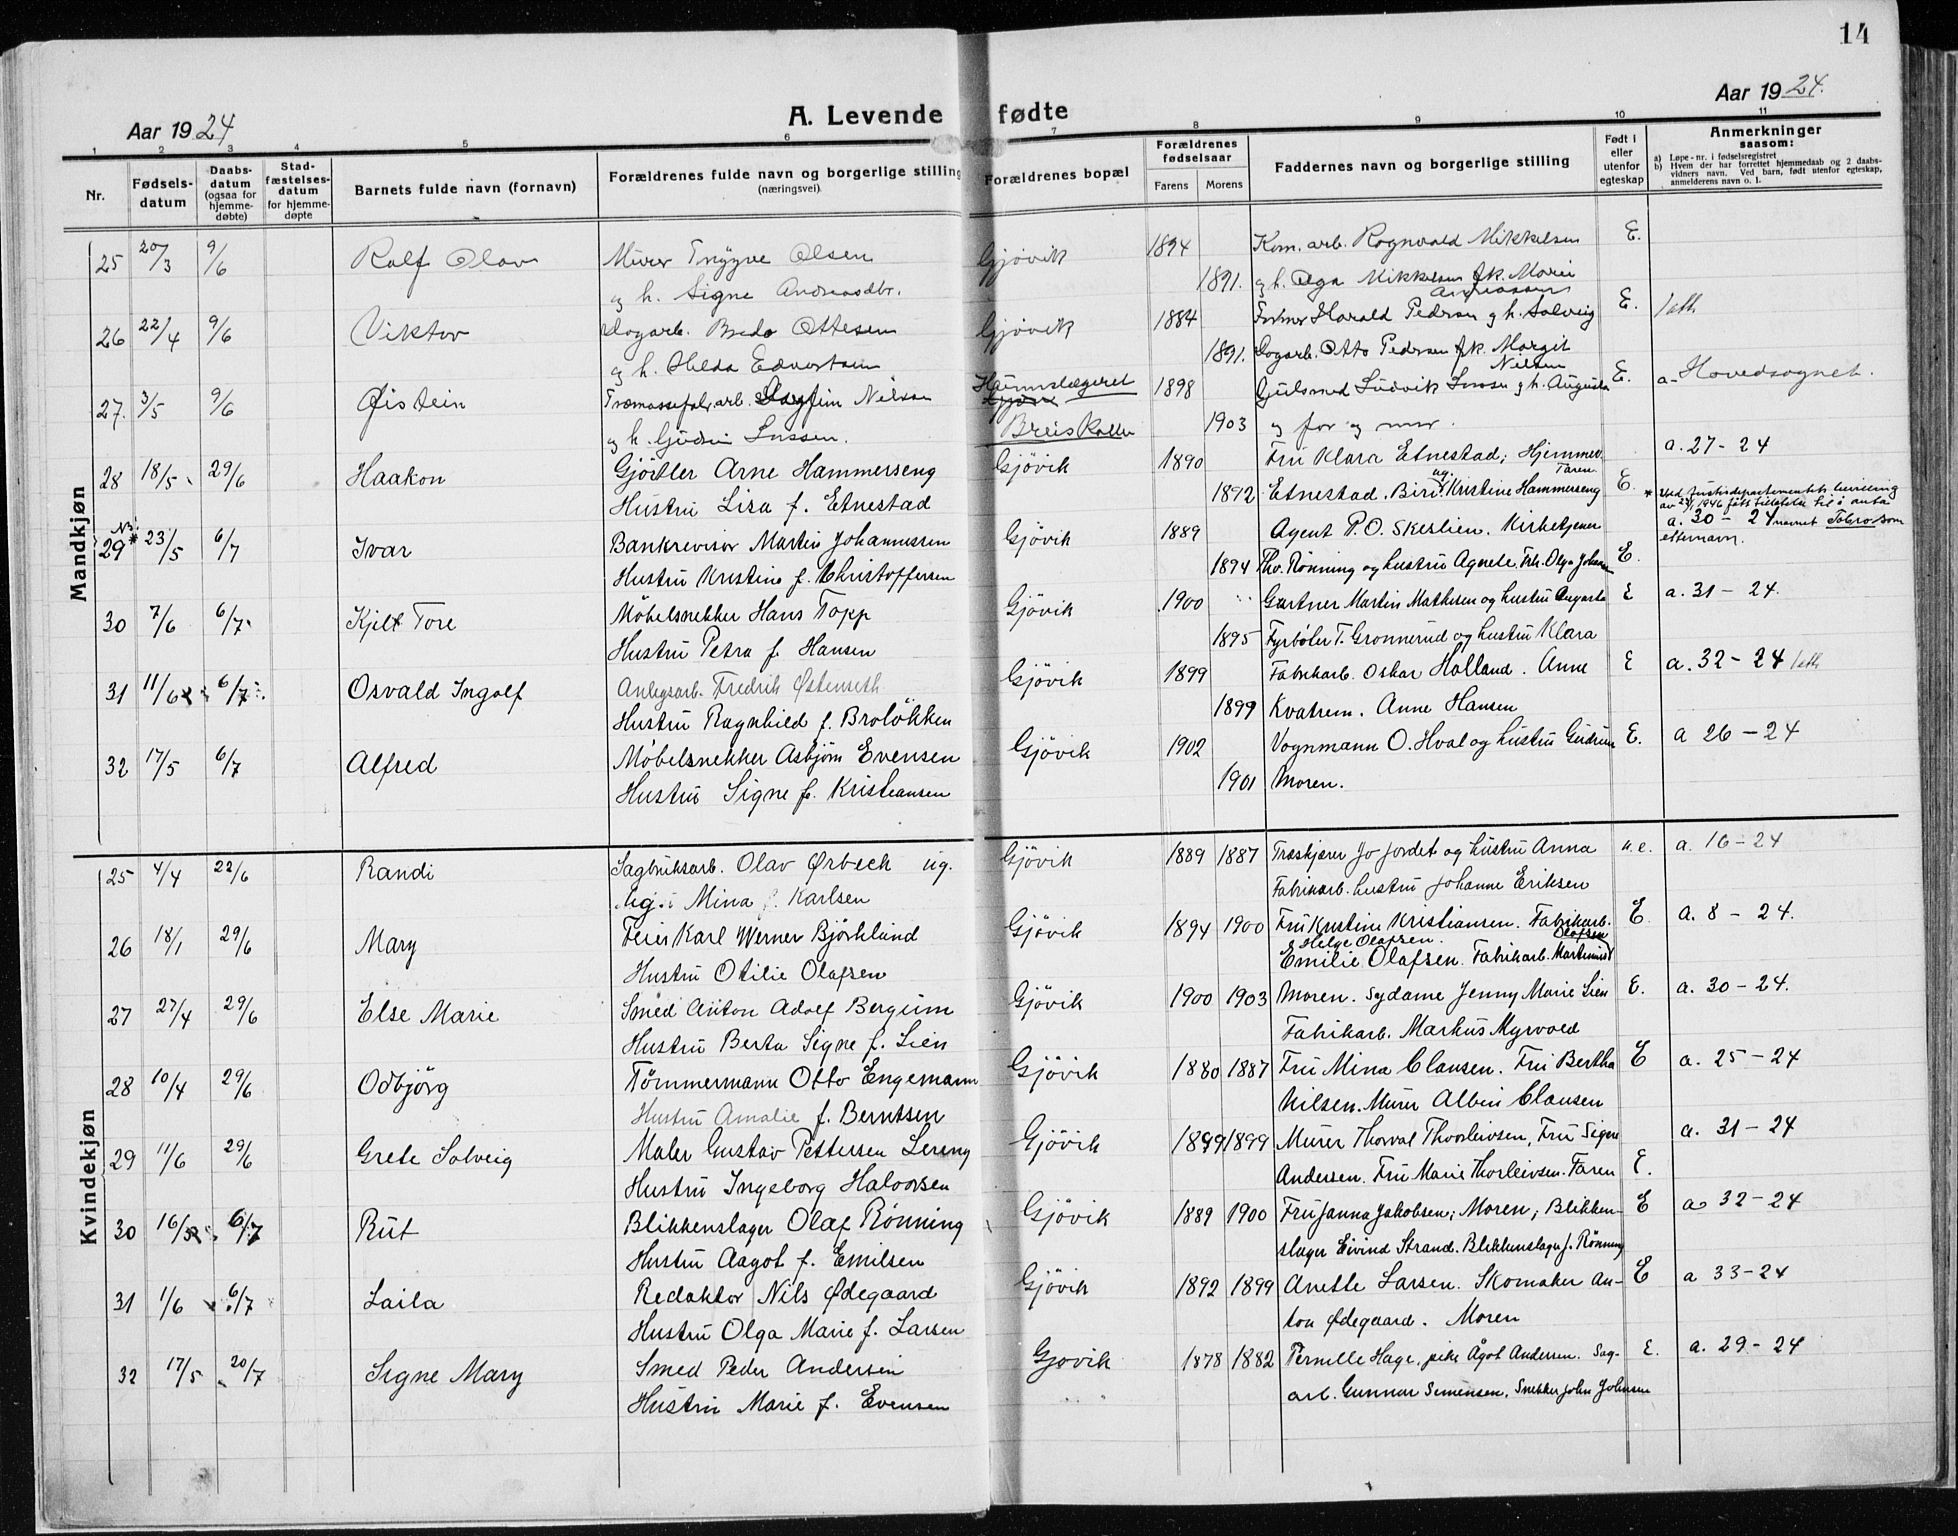 14
Aar 1924
A. Levende fødte
Aar 1924.
1 2 3 4 5 6 7 8 9 10 11
Nr.
Fødsels-datum
Daabs-datum (ogsaa for hjemme-døbte)
Stad-fæstelses-datum for hjemme-døpte
Barnets fulde navn (fornavn)
Forældrenes fulde navn og borgerlige stilling (næringsvei).
Forældrenes bopæl
Forældrenes fødselsaar
Farens Morens
Faddernes navn og borgerlige stilling
Født i eller utenfor egteskap
Anmerkninger saasom:
a) Løpe-nr. i fødselsregistret
b) Hvem der har forrettet hjemmedaab og 2 daabs-vidners navn. Ved barn, født utenfor egteskap, anmelderens navn o. l.
Mandkjøn
25 20/3 9/6 Rolf Olav Murer Trygve Olsen Gjøvik 1894 Kom. arb. Ragnvald Mikkelsen E.
og h. Signe Andreasdtr. 1891. og h. Olga Mikkelsen fk. Marie
Andreassen
26 22/4 9/6 Viktor Dagarb. Bredo Ottesen Gjøvik 1884 Harald Pedersen g h. Solveig E.
og h. Hilda Edvartsen 1891. Dagarb. Otto Pedersen fk. Margit
Nilsen
27. 3/5 9/6 Øistein Træmassefabr. arb. Dagfin Nilsen 1898 Gulsmed Ludvik Larsen g h. Augusta E. a- Hovedsognet.
og h. Gudrun Larsen. Breiskallen 1903 og far og mor.
28 18/5 29/6 Haakon Gjörtler Arne Hammerseng Gjövik 1890 Fru Klara Etnestad; Hjemmev. a. 27-24
Faren.
Hustru Lisa f. Etnestad 1892 Etnestad. Biri. ug. Kristine Hammerseng E.
* Ved Justisdepartementets bevilling av 1946 fått tillatelse til å anta
29 * 23/5 6/7 Ivar Bankrevisor Martin Johannessen Gjövik 1889 Agent P. O. Skeslien. Kirketjener a. 30 - 24 navnet Tobro som etternavn.
Hustru Kristine f. Christoffersen 1894 Thv. Rönning og hustru Agnete. Frk. Olga Johansen E.
30 7/6 6/7 Kjell Tore Möbelsnekker Hans Topp Gjövik 1900 Gartner Martin Mathisen og hustru Augusta E a. 31 - 24.
Hustru Petra f. Hansen 1895 Fyrbøter T. Grønnerud og hustru Klara
31 11/6 6/7 Osvald Ingolf Anlegsarb. Fredrik Østenseth Gjövik 1899 Fabrikarb. Oskar Holland. Anne E a. 32 - 24
Hustru Ragnhild f. Brolökken 1899 Kvatrem. Anne Hansen
32 17/5 6/7 Alfred Möbelsnekker Asbjørn Evensen Gjövik 1902 Vognmann O. Hval og hustru Gudrun E. a 26 - 24
Hustru Signe f. Kristiansen 1901 Moren.
Kvindekjøn
25 4/4 22/6 Randi Sagbruksarb. Olav Ørbeck ug. Gjövik 1889 1887 Jo Jordet og hustru Anna u.e. a. 16 - 24
ug. Mina Karlsen Fabrikarb. hustru Johanne Eriksen
26 18/1 29/6 Mary Feier Karl Werner Björklund Gjövik 1894 1900 Fru Kristine Kristiansen. Fabrikarb. E. a. 8 - 24.
Helge Olafsen. Olafsen
Hustru Otilie Olafsen Emilie Olafsen. Fabrikarb. Martinius
27 27/4 29/6 Else Marie Smed Anton Adolf Bergum Gjövik 1900 1903 Moren. Sydame Jenny Marie Lien E. a. 30 - 24.
Hustru Berta Signe f. Lien Fabrikarb. Markus Myrvold
28 10/4 29/6 Odbjörg Tømmermann Otto Engemann Gjövik 1880 1887 Fru Mina Clausen. Fru Bertha E a. 25 - 24
Hustru Amalie f. Berntsen Nilsen. Murer Albin Clausen
29 11/6 29/6 Grete Solveig Maler Gustav Pettersen Lereng Gjövik 1899 1899 Murer Thorval Thorleivsen, Fru Signe a. 31 - 24
Hustru Ingeborg Halvorsen Andersen. Fru Marie Thorleivsen. Faren E.
30 16/5 6/7 Rut Blikkenslager Olaf Rönning Gjövik 1889 1900 Fru Janna Jakobsen; Moren; Blikken- E a. 32 - 24
Hustru Aagot f. Emilsen slager Eivind Strand. Blikkenslager J. Rönning
31 1/6 6/7 Laila Redaktör Nils Ødegaard Gjövik 1892 1899 Anette Larsen. Skomaker An- E a 33 - 24
Hustru Olga Marie f. Larsen ton Ødegaard. Moren
32 17/5 20/7 Signe Mary Smed Peder Andersen Gjøvik 1878 1882 Pernille Hage, pike Ågot Andersen. Sag- E. a. 29 - 24
Hustru Marie f. Evensen arb. Gunnar Simensen, Snekker John Johnsen